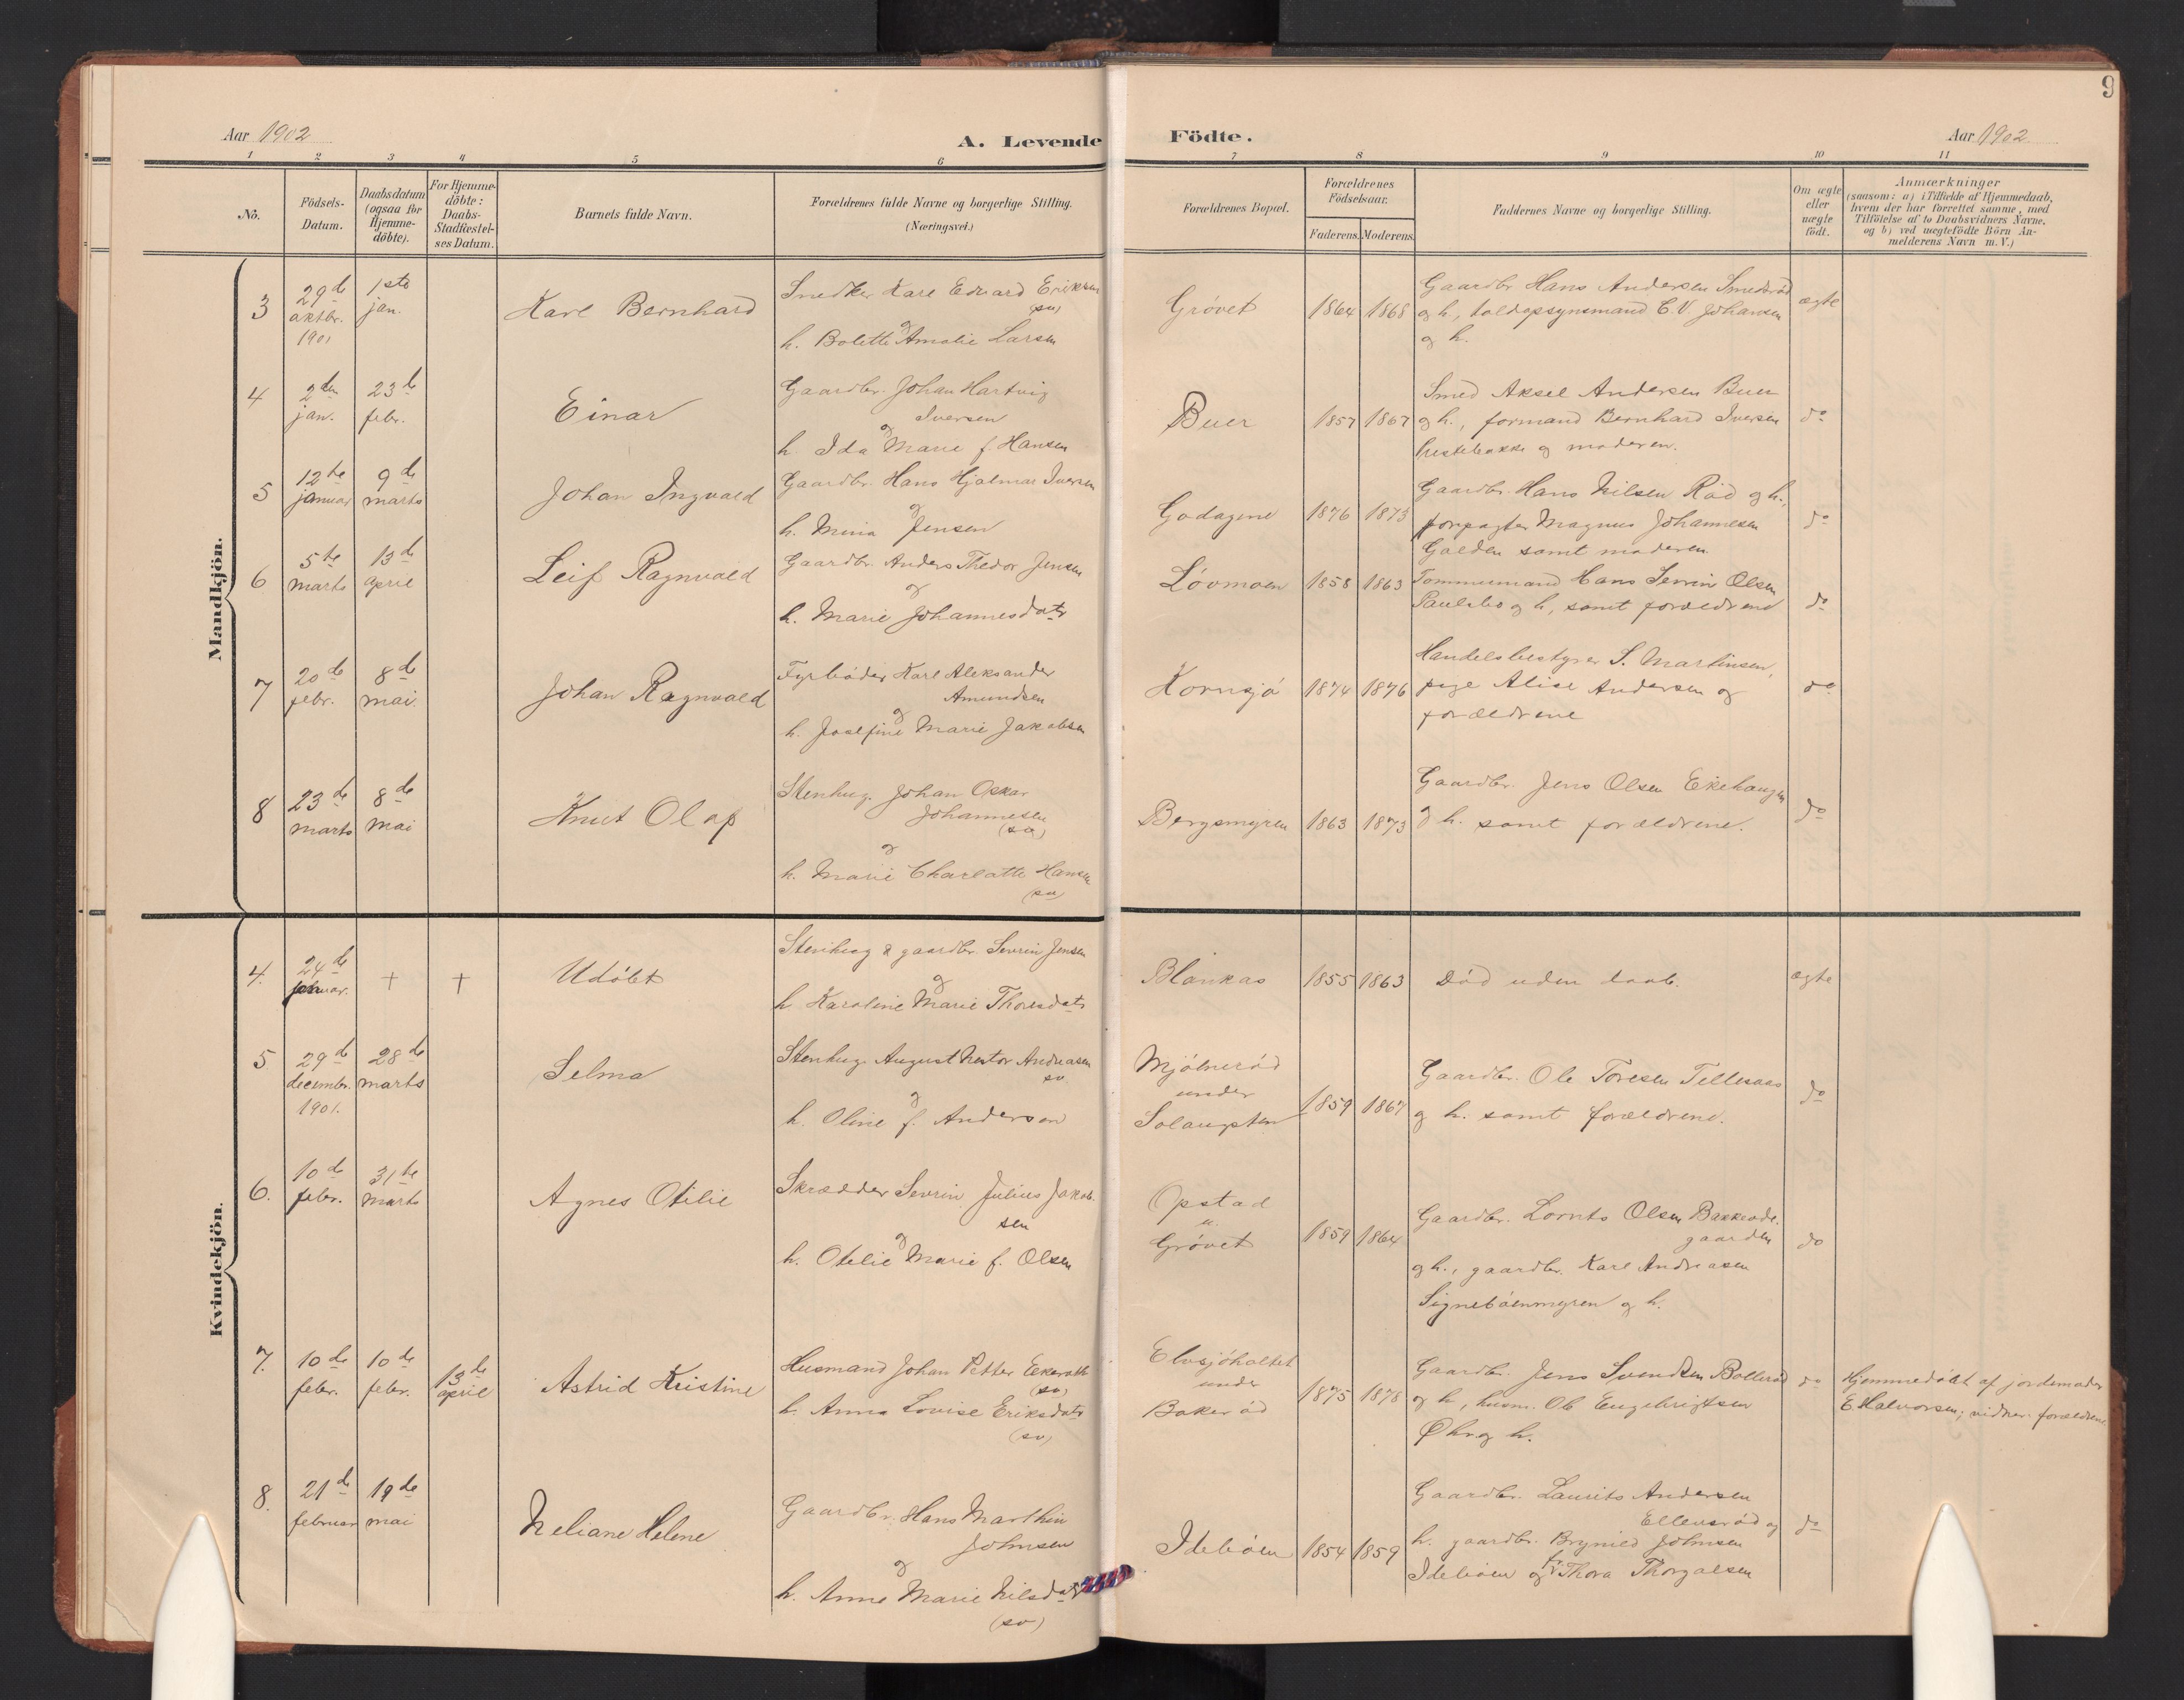 9
Aar 1902
A. Levende Födte.
Aar 1902
1 2 3 4 5 6 7 8 9 10 11
No.
Födsels-Datum.
Daabsdatum (ogsaa for Hjemme-döbte).
For Hjemme-döbte: Daabs-Stadfæstel-ses Datum.
Barnets fulde Navn.
Forældrenes fulde Navne og borgerlige Stilling.
(Næringsvei.)
Forældrenes Bopæl.
Forældrenes Födselsaar.
Faderens. Moderens.
Faddernes Navne og borgerlige Stilling.
Om ægte eller uægte födt.
Anmærkninger
(saasom: a) i Tilfælde af Hjemmedaab,
hvem der har forrettet samme, med
Tilföielse af to Daabsvidners Navne,
og b) ved uægtefödte Börn An-
melderens Navn m. V.)
Mandkjön.
3
29de oktbr. 1901
1ste jan.
Karl Bernhard
Snedker Karl Edvard Eriksen
(sv)
og
h. Bolette Amalie Larsen
Grøvet
1864 1868
Gaardbr Hans Andersen Smedsrød
og h., toldopsynsmand C. V. Johansen
og h.
ægte
4
2den jan.
23de febr.
Einar
Gaardbr. Johan Hartvig
Iversen
og
h. Ida Marie f. Hansen
Buer
1857 1867
Smed Aksel Andersen Buer
og h., formand Bernhard Iversen
Prestebakke og moderen.
do
5
12te januar
9de marts
Johan Ingvald
Gaardbr. Hans Hjalmar Iversen
og
h. Mina Jensen
Godagene
1876 1873
Gaardbr. Hans Nilsen Rød og h.,
forpagter Magnus Johannesen
Galden samt moderen.
do
6
5te marts
13de april
Leif Ragnvald
Gaardbr. Anders Thedor Jensen
og
h. Marie Johannesdatr
Løvmoen
1858 1863
Tømmermand Hans Sevrin Olsen
Paulsbo og h., samt forældrene
do
7
20de febr.
8de mai.
Johan Ragnvald
Fyrbøder Karl Aleksander
Amundsen
og
h. Josefine Marie Jakobsen
Kornsjø
1874 1876
Handelsbestyrer S. Martinsen,
pige Alise Andersen og
forældrene
do
8
23de marts
8de mai
Knut Olaf
Stenhug. Johan Oskar
Johannesen
(sv)
og
h. Marie Charlotte Hansen
(sv)
Bergsmyren
1863 1873
Gaardbr. Jens Olsen Ekehaugen
og h. samt forældrene.
do
Kvindekjön.
4.
24de januar.
+ +
Udøbt
Stenhug & gaardbr. Sevrin Jensen
og
h. Karoline Marie Thoresdatr
Blankas
1855 1863
Død uden daab.
ægte
5
29de decembr. 1901.
28de marts
Selma
Stenhug. August Nestor Andreasen
sv
og
h. Oline f. Andersen
Mjølnerød
under
Solaugsten
1859 1867
Gaardbr. Ole Toresen Tellesaas
og h. samt forældrene.
do
6.
10de febr.
31te marts
Agnes Otilie
Skrædder Sevrin Julius Jakob.
sen
og
h. Otelie Marie f. Olsen
Opstad
u.
Grøvet
1859 1864
Gaardbr. Lornts Olsen Bakkerøds.
gaarden
og h., gaardbr. Karl Andreasen
Signebøenmyren og h.
do
7.
10de febr.
10de febr.
13de april
Astrid Kristine
Husmand Johan Petter Ekeroth
(sv)
h. Anna Lovise Eriksdatr
(sv)
Elvsjøholtet
under
Bakerød
1875 1878
Gaardbr. Jens Svendsen Bollerød
og h., husm. Ole Engebrigtsen
Øhr og h.
do
Hjemmedøbt af jordemoder
E. Halvorsen; vidner: forældrene
8.
21de februar
19de mai
Neliane Helene
Gaardbr. Hans Marthin
Johnsen
og
h. Anne Marie Nilsdatr
(sv)
Idebøen
1854 1859
Gaardbr. Laurits Andersen
Ellensrød og
h. gaardbr. Brynild Johnsen
Idebøen og fr. Thora Thorgalsen
do